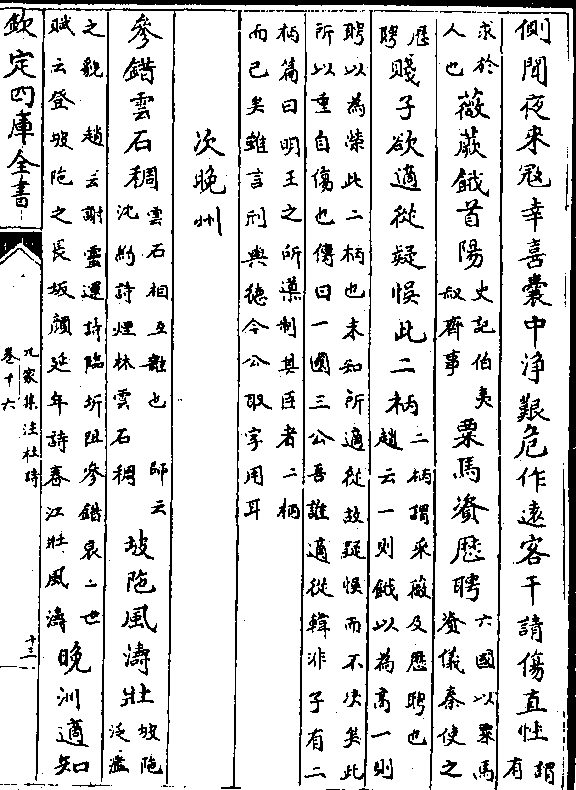 側聞夜来冦幸喜囊中净艱危作遠客干請傷直性謂有
求於人也薇蕨餓首陽史記伯夷叔齊事粟馬資歷聘六國以粟馬資儀秦使之
歷聘賤子欲適從疑悞此二柄二柄謂采薇及歷聘也趙云一則餓以為高一則
聘以為榮此二柄也未知所適從故疑悞而不决矣此
所以重自傷也傳曰一國三公吾誰適從韓非子有二
柄篇曰明王之所導制其臣者二柄
而已矣雖言刑與德今公取字用耳
次晚州
參錯雲石稠雲石相互雜也 師云沈約詩煙林雲石稠坡陁風濤壯坡陁泛濫
之貌 趙云謝靈運詩臨圻阻參錯哀二世賦云登坡陁之長坂顔延年詩春江壯風濤晚洲適知
欽定四庫全書
九家集注杜詩
卷十六
十三